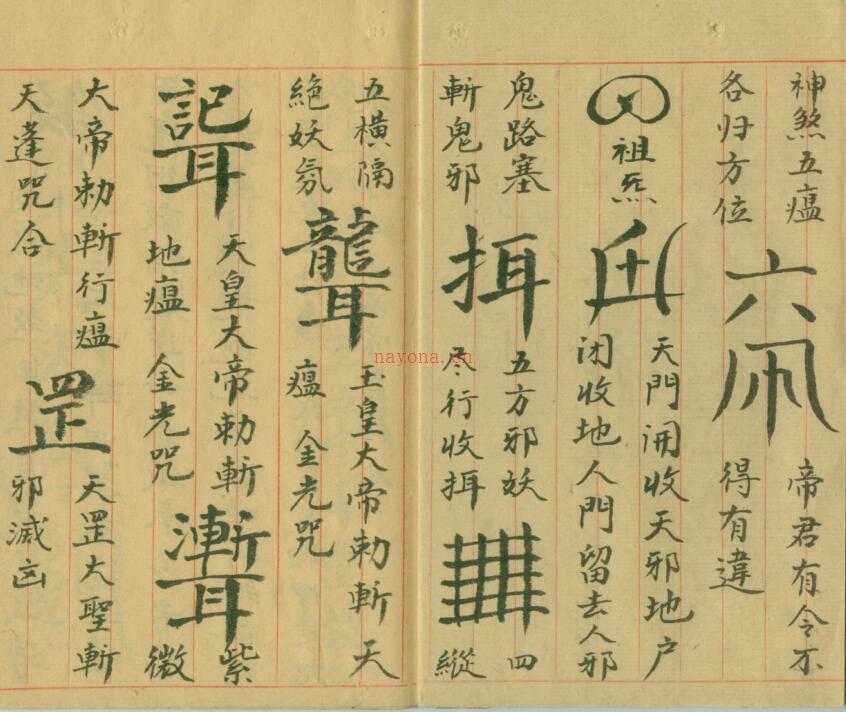 神煞五瘟
各归方位
帝君有令不
得有違
祖炁
天門闭收天邪地户
闭收地人門留去人邪
鬼路塞
斬鬼邪
挕
五方邪妖
尽行收挕
四
縱
五横隔
絶妖氛
玉皇大帝勅斬天
瘟 金光咒
天皇大帝勅斬
地瘟 金光咒
紫
微
大帝勅斬行瘟
天蓬咒合
罡
天罡大聖斬
邪滅凶
nayona.cn